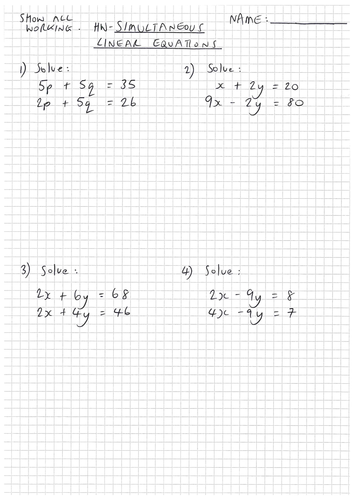 SHOW ALL WORKING. HW- SIMULTANEOUS LINEAR EQUATIONS
NAME:
1) Solve:
5p + 5q = 35
2p + 5q = 26
2) Solve:
x + 2y = 20
9x - 2y = 80
3) Solve:
2x + 6y = 68
2x + 4y = 46
4) Solve:
2x - 9y = 8
4x - 9y = 7